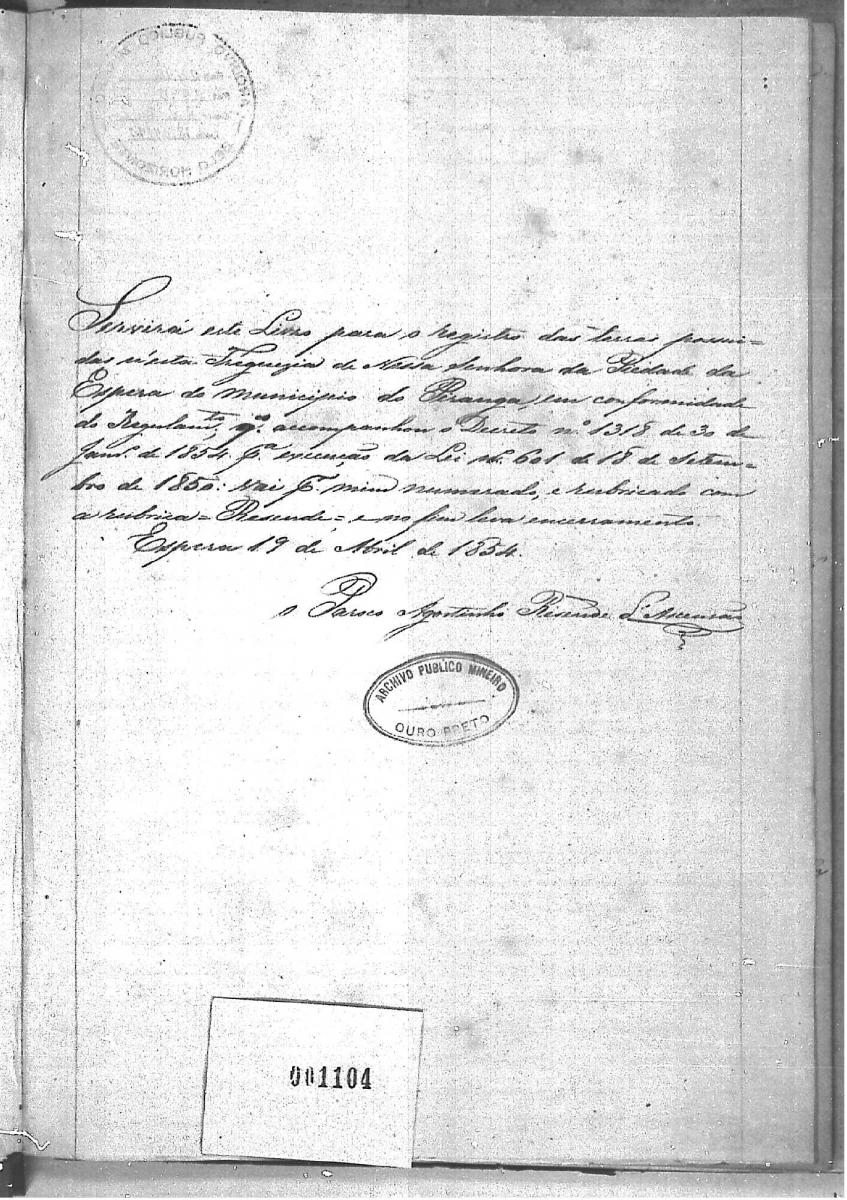 Servirá este Livro para o registro das terras possui=
das n'esta Freguezia de Nossa Senhora da Piedade da
Espera do municipio do Piranga, em conformidade
do Regulam.to q̃. acompanhou o Decreto nº. 1318 de 30 de
Janr.º de 1854. P.a execução da Lei nº. 601 de 18 de Setem=
bro de 1850: vai P.r mim numerado, e rubricado com
a rubrica = Resende = e no fim leva encerramento.
Espera 19 de Abril de 1854.
o Paroco Agostinho Resende d'Ascensão
ARCHIVO PUBLICO MINEIRO
OURO PRETO
001104